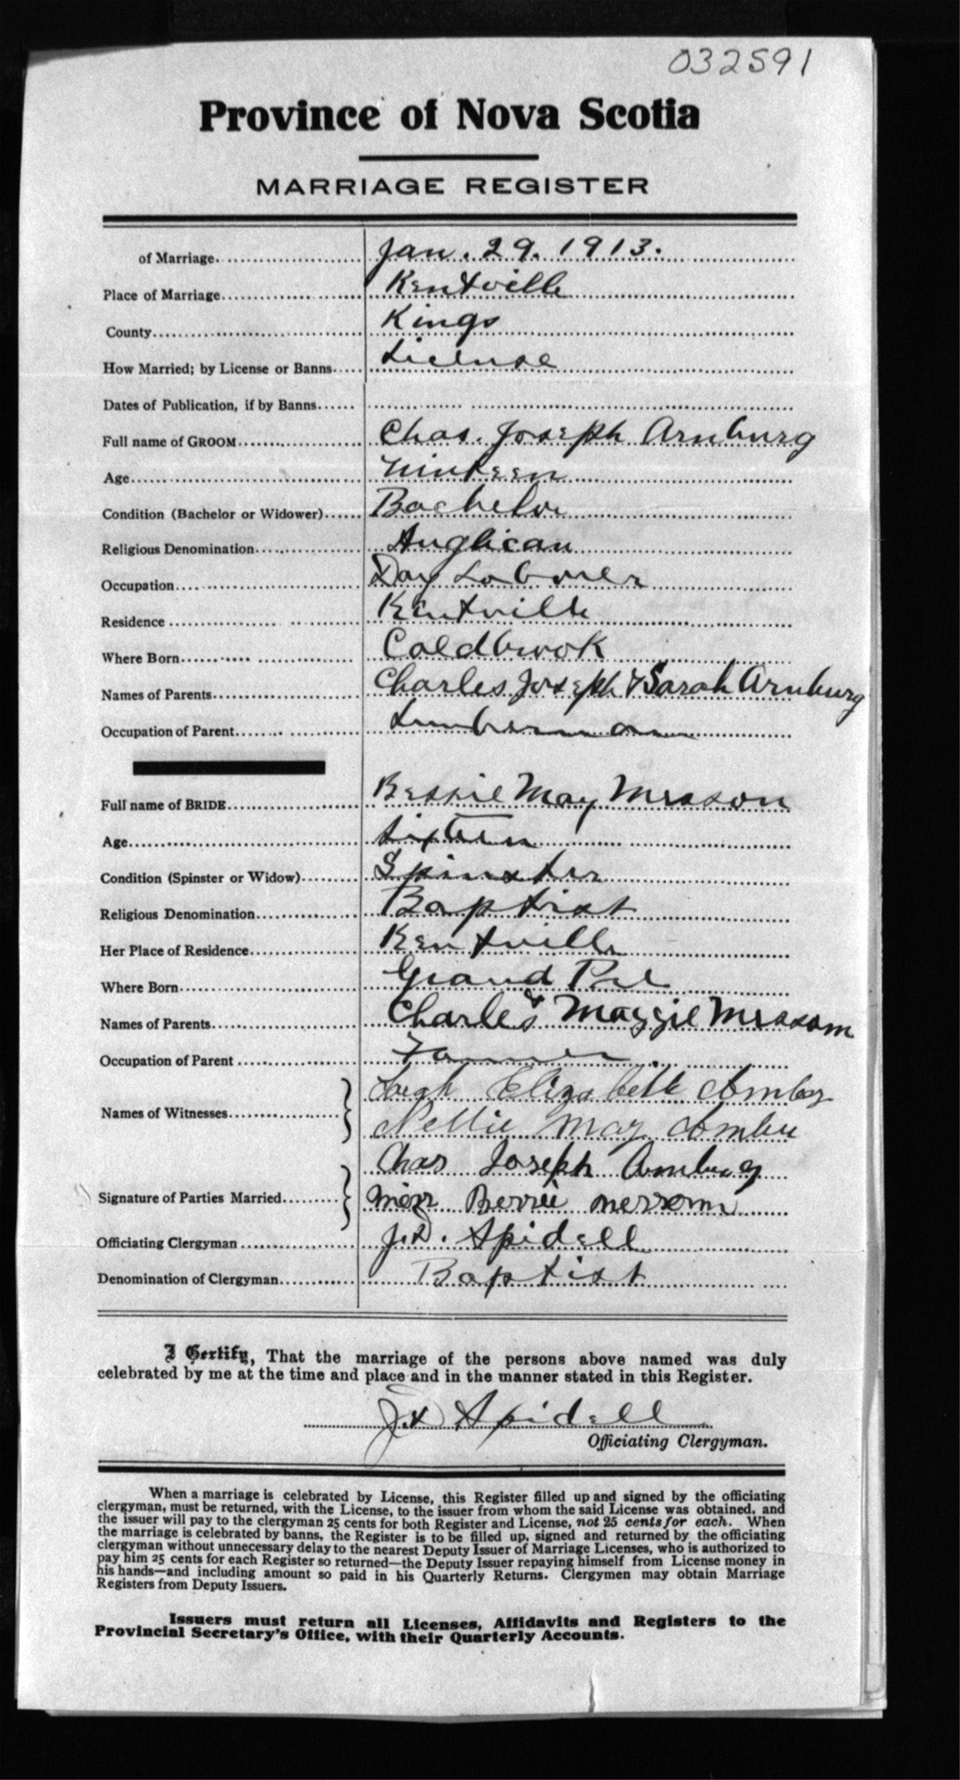 032591
Province of Nova Scotia
MARRIAGE REGISTER
of Marriage Jan. 29. 1913.
Place of Marriage Kentville
County Kings
How Married; by License or Banns License
Dates of Publication, if by Banns
Full name of GROOM Chas. Joseph Arnburg
Age Ninteen
Condition (Bachelor or Widower) Bachelor
Religious Denomination Anglican
Occupation Day Laborer
Residence Kentville
Where Born Coldbrook
Names of Parents Charles Joseph & Sarah Arnburg
Occupation of Parent Lumberman
Full name of BRIDE Bessie May Messom
Age Sixteen
Condition (Spinster or Widow) Spinster
Religious Denomination Baptist
Her Place of Residence Kentville
Where Born Grand Pre
Names of Parents Charles & Maggie Messom
Occupation of Parent Farmer
Names of Witnesses Elizabeth
Nellie May
Chas Joseph
Signature of Parties Married Miss Bessie Messom
Officiating Clergyman J.D. Spidell
Denomination of Clergyman Baptist
I Certify, That the marriage of the persons above named was duly
celebrated by me at the time and place and in the manner stated in this Register.
JD Spidell
Officiating Clergyman.
When a marriage is celebrated by License, this Register filled up and signed by the officiating
clergyman, must be returned, with the License, to the issuer from whom the said License was obtained, and
the issuer will pay to the clergyman 25 cents for both Register and License, not 25 cents for each. When
the marriage is celebrated by banns, the Register is to be filled up, signed and returned by the officiating
clergyman without unnecessary delay to the nearest Deputy Issuer of Marriage Licenses, who is authorized to
pay him 25 cents for each Register so returned—the Deputy Issuer repaying himself from License money in
his hands—and including amount so paid in his Quarterly Returns. Clergymen may obtain Marriage
Registers from Deputy Issuers.
Issuers must return all Licenses, Affidavits and Registers to the
Provincial Secretary's Office, with their Quarterly Accounts.